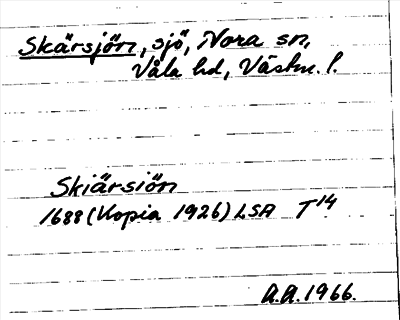 Skärsjön, sjö, Nora sn,
Våla hd, Västm. l.
Skiärsiön
1688 (Kopia 1926) LSA T14
A.A. 1966.